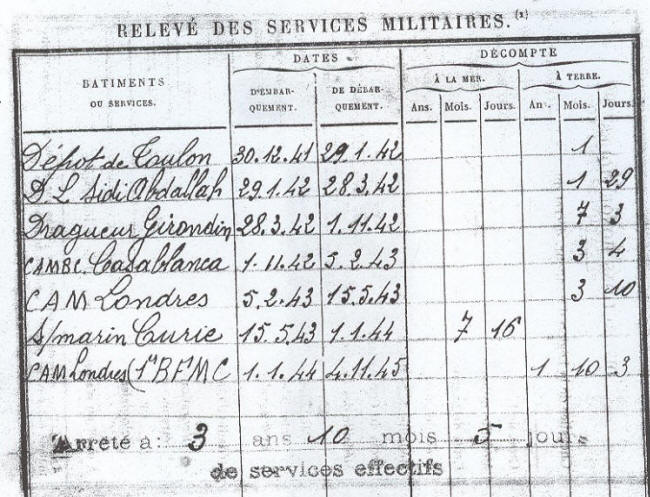 RELEVÉ DES SERVICES MILITAIRES. (1)
BATIMENTS OU SERVICES. DATES DÉCOMPTE
D'EMBARQUEMENT. DE DÉBARQUEMENT. À LA MER. À TERRE.
Ans. Mois. Jours. An. Mois. Jours
Dépot de Toulon 30.12.41 29.1.42 1
D L Sidi Abdallah 29.1.42 28.3.42 1 29
Dragueur Girondin 28.3.42 1.11.42 7 3
CAMBC. Casablanca 1.11.42 5.2.43 3 4
CAM Londres 5.2.43 15.5.43 3 10
S/marin Curie 15.5.43 1.1.44 7 16
CAM Londres (1er BFMC 1.1.44 4.11.45 1 10 3
Arrété à: 3 ans 10 mois 5 jours
de services effectifs